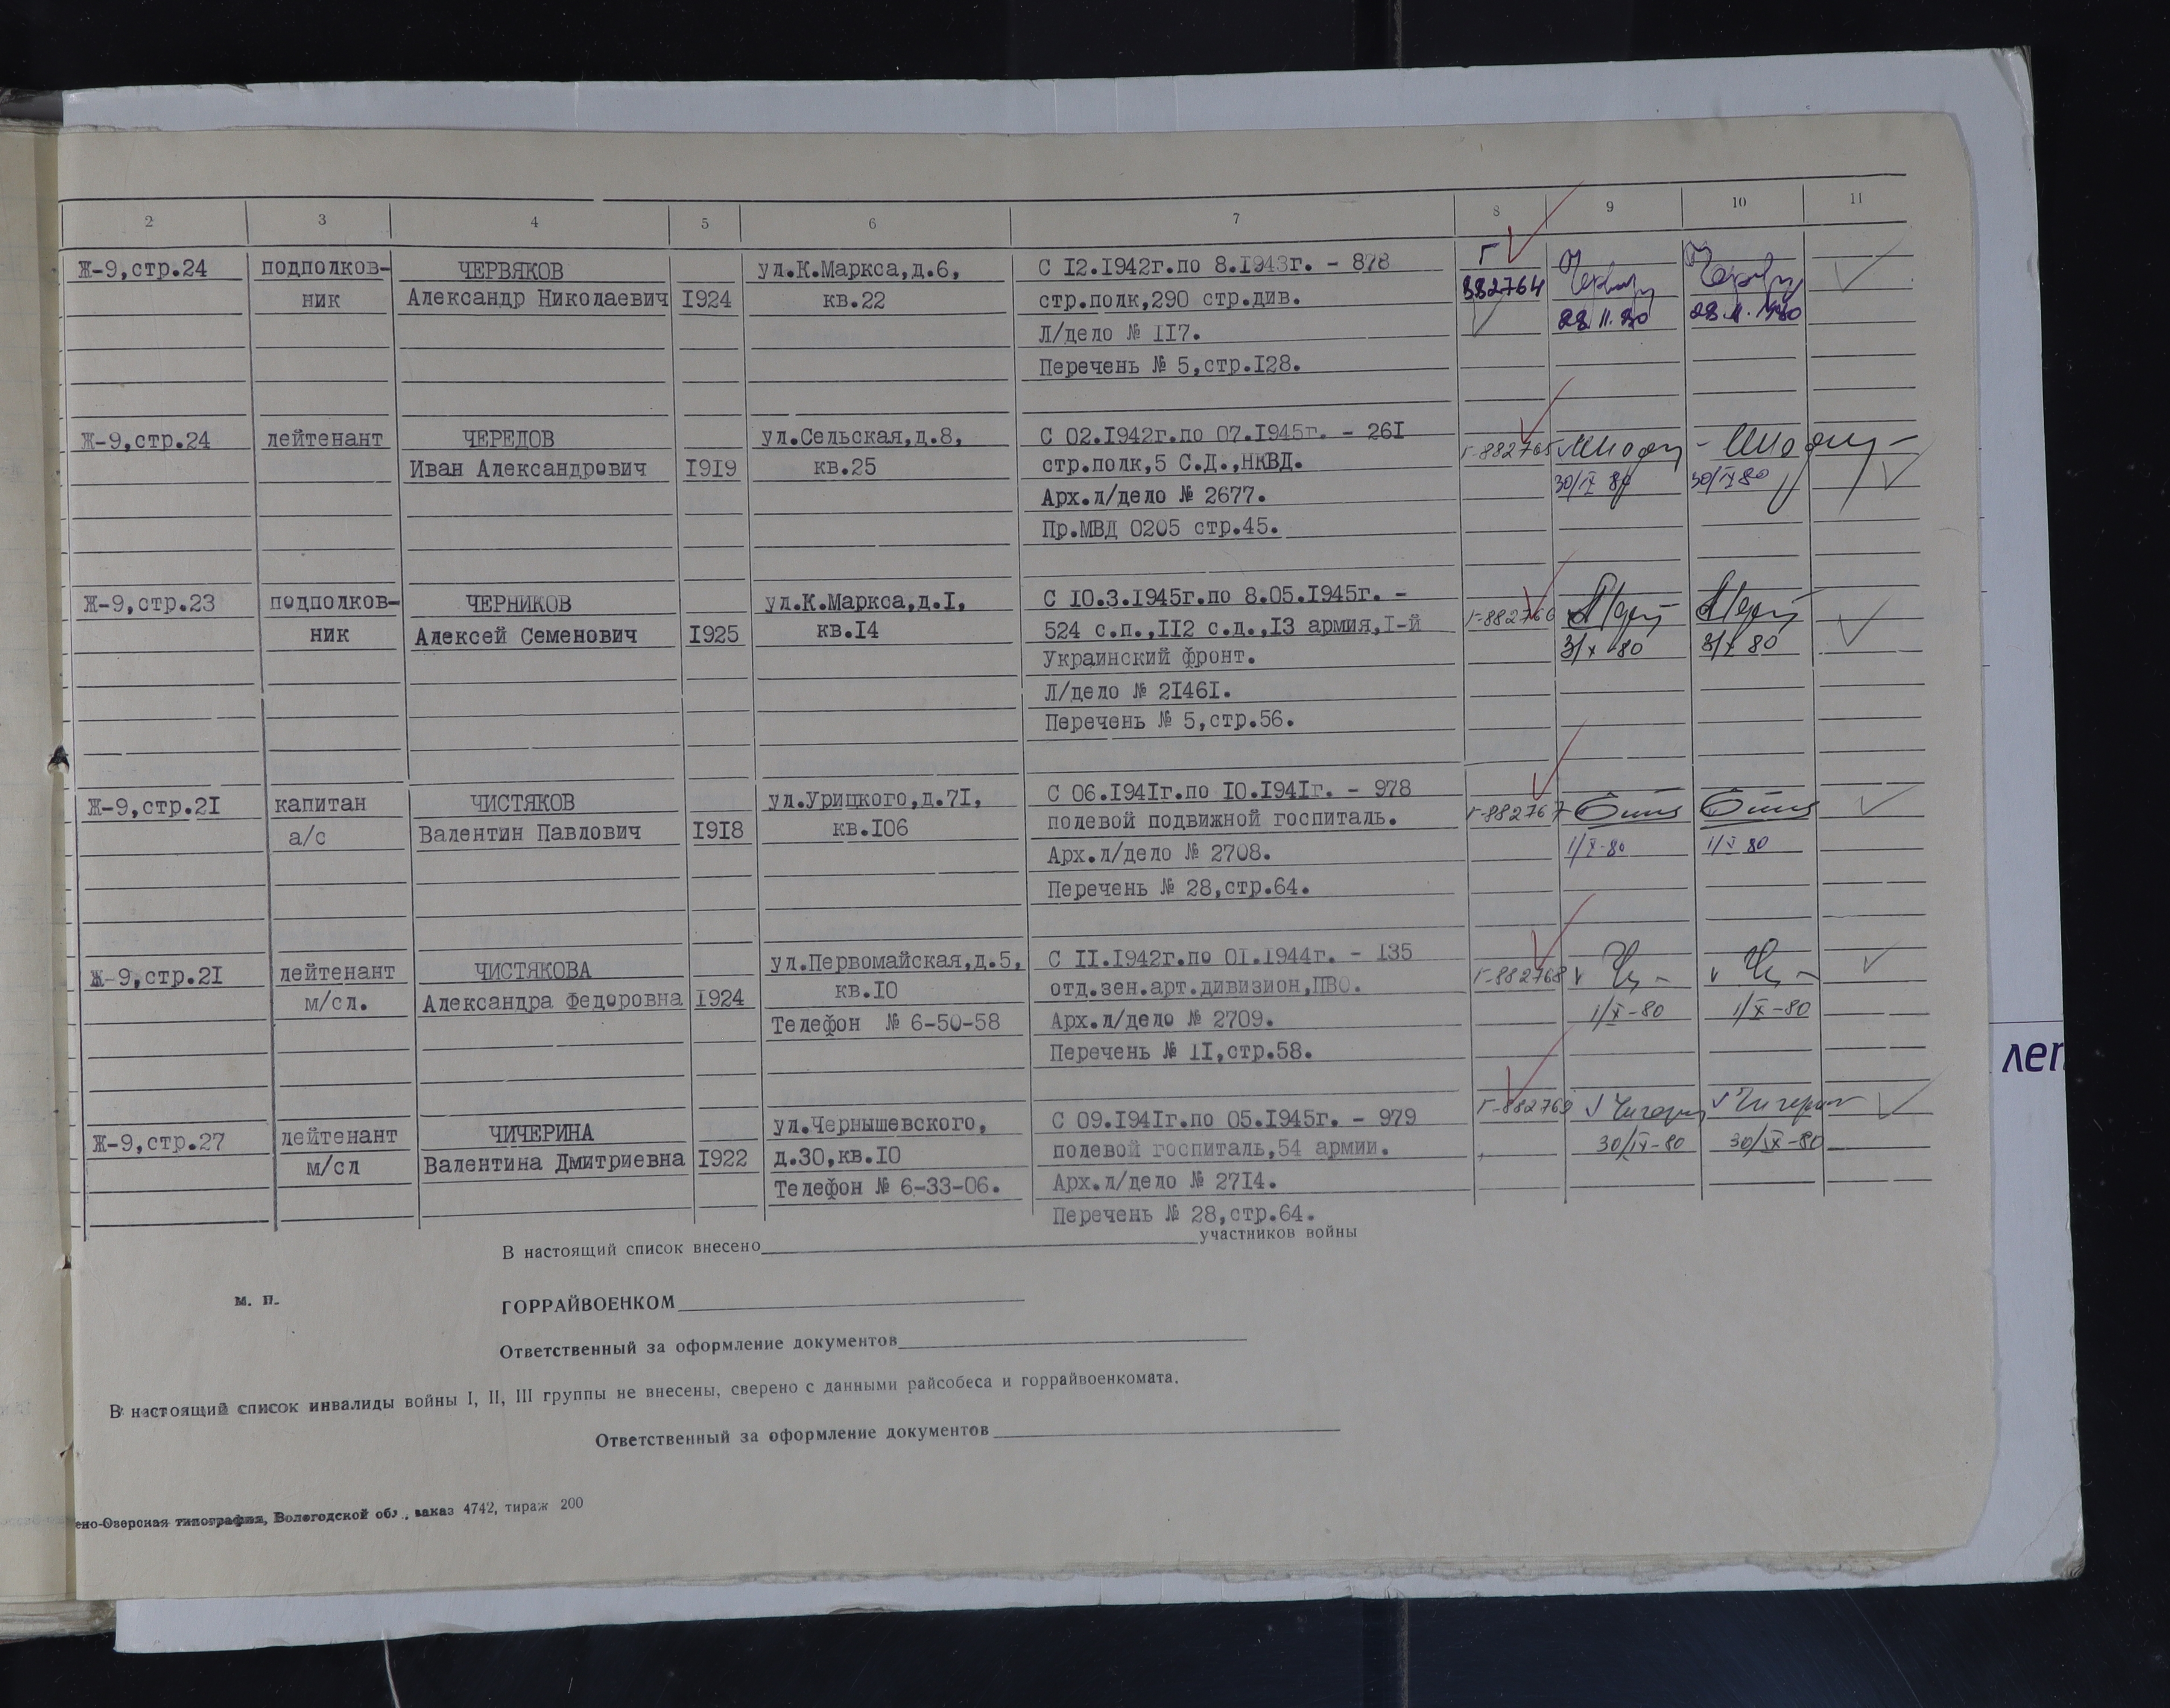 2 3 4 5 6 7 8 9 10 11
Ж-9,стр.24 подполков- ЧЕРВЯКОВ ул.К.Маркса,д.6, С I2.I942г.по 8.I943г. - 878 Г
ник Александр Николаевич I924 кв.22 стр.полк,290 стр.див. 882764
Л/дело № II7. 28.11.80 28.11.1980
Перечень № 5,стр.I28.
Ж-9,стр.24 лейтенант ЧЕРЕДОВ ул.Сельская,д.8, С 02.I942г.по 07.I945г. - 26I Г-882765
Иван Александрович I9I9 кв.25 стр.полк,5 С.Д.,НКВД. 30/IX 80 30/IX 80
Арх.л/дело № 2677.
Пр.МВД 0205 стр.45.
Ж-9,стр.23 подполков- ЧЕРНИКОВ ул.К.Маркса,д.I, С I0.3.I945г.по 8.05.I945г. - Г-882766
ник Алексей Семенович I925 кв.I4 524 с.п.,II2 с.д.,I3 армия,I-й
Украинский фронт. 3/X 80 3/X 80
Л/дело № 2I46I.
Перечень № 5,стр.56.
Ж-9,стр.2I капитан ЧИСТЯКОВ ул.Урицкого,д.7I, С 06.I94Iг.по I0.I94Iг. - 978 Г-882767
а/с Валентин Павлович I9I8 кв.I06 полевой подвижной госпиталь.
Арх.л/дело № 2708. 1/X-80 1/X 80
Перечень № 28,стр.64.
Ж-9,стр.2I лейтенант ЧИСТЯКОВА ул.Первомайская,д.5, С II.I942г.по 0I.I944г. - I35 Г-882768
м/сл. Александра Федоровна I924 кв.I0 отд.зен.арт.дивизион,ПВО. 1/X-80 1/X-80
Телефон № 6-50-58 Арх.л/дело № 2709.
Перечень № II,стр.58.
Ж-9,стр.27 лейтенант ЧИЧЕРИНА ул.Чернышевского, С 09.I94Iг.по 05.I945г. - 979 Г-882769
м/сл Валентина Дмитриевна I922 д.30,кв.I0 полевой госпиталь,54 армии. 30/IX-80 30/IX-80
Телефон № 6-33-06. Арх.л/дело № 27I4.
Перечень № 28,стр.64.
В настоящий список внесено участников войны
м. п. ГОРРАЙВОЕНКОМ
Ответственный за оформление документов
В настоящий список инвалиды войны I, II, III группы не внесены, сверено с данными райсобеса и горрайвоенкомата.
Ответственный за оформление документов
ено-Озерская типография, Вологодской обл., заказ 4742, тираж 200
леп